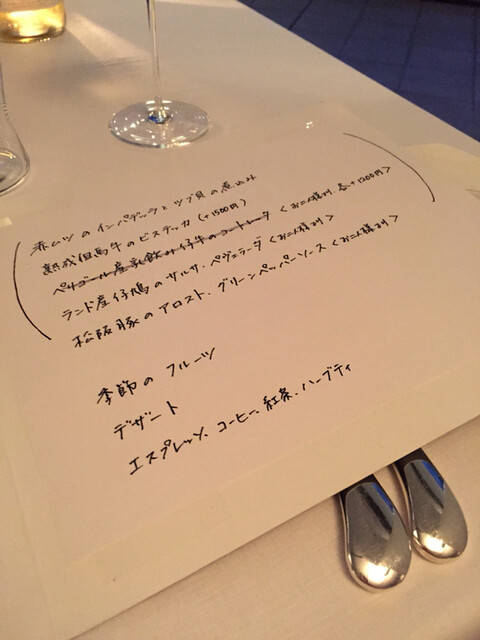 赤ムツのインパデッラとツブ貝の煮込み
熟成但馬牛のビステッカ(+1500円)
ペリゴール産乳飲み仔牛のコートレータ<お二人様より、各+1200円>
ランド産仔鳩のサルサ・ペヴェラーダ<お二人様より>
松阪豚のアロスト、グリーンペッパーソース<お二人様より>
季節のフルーツ
デザート
エスプレッソ、コーヒー、紅茶、ハーブティ